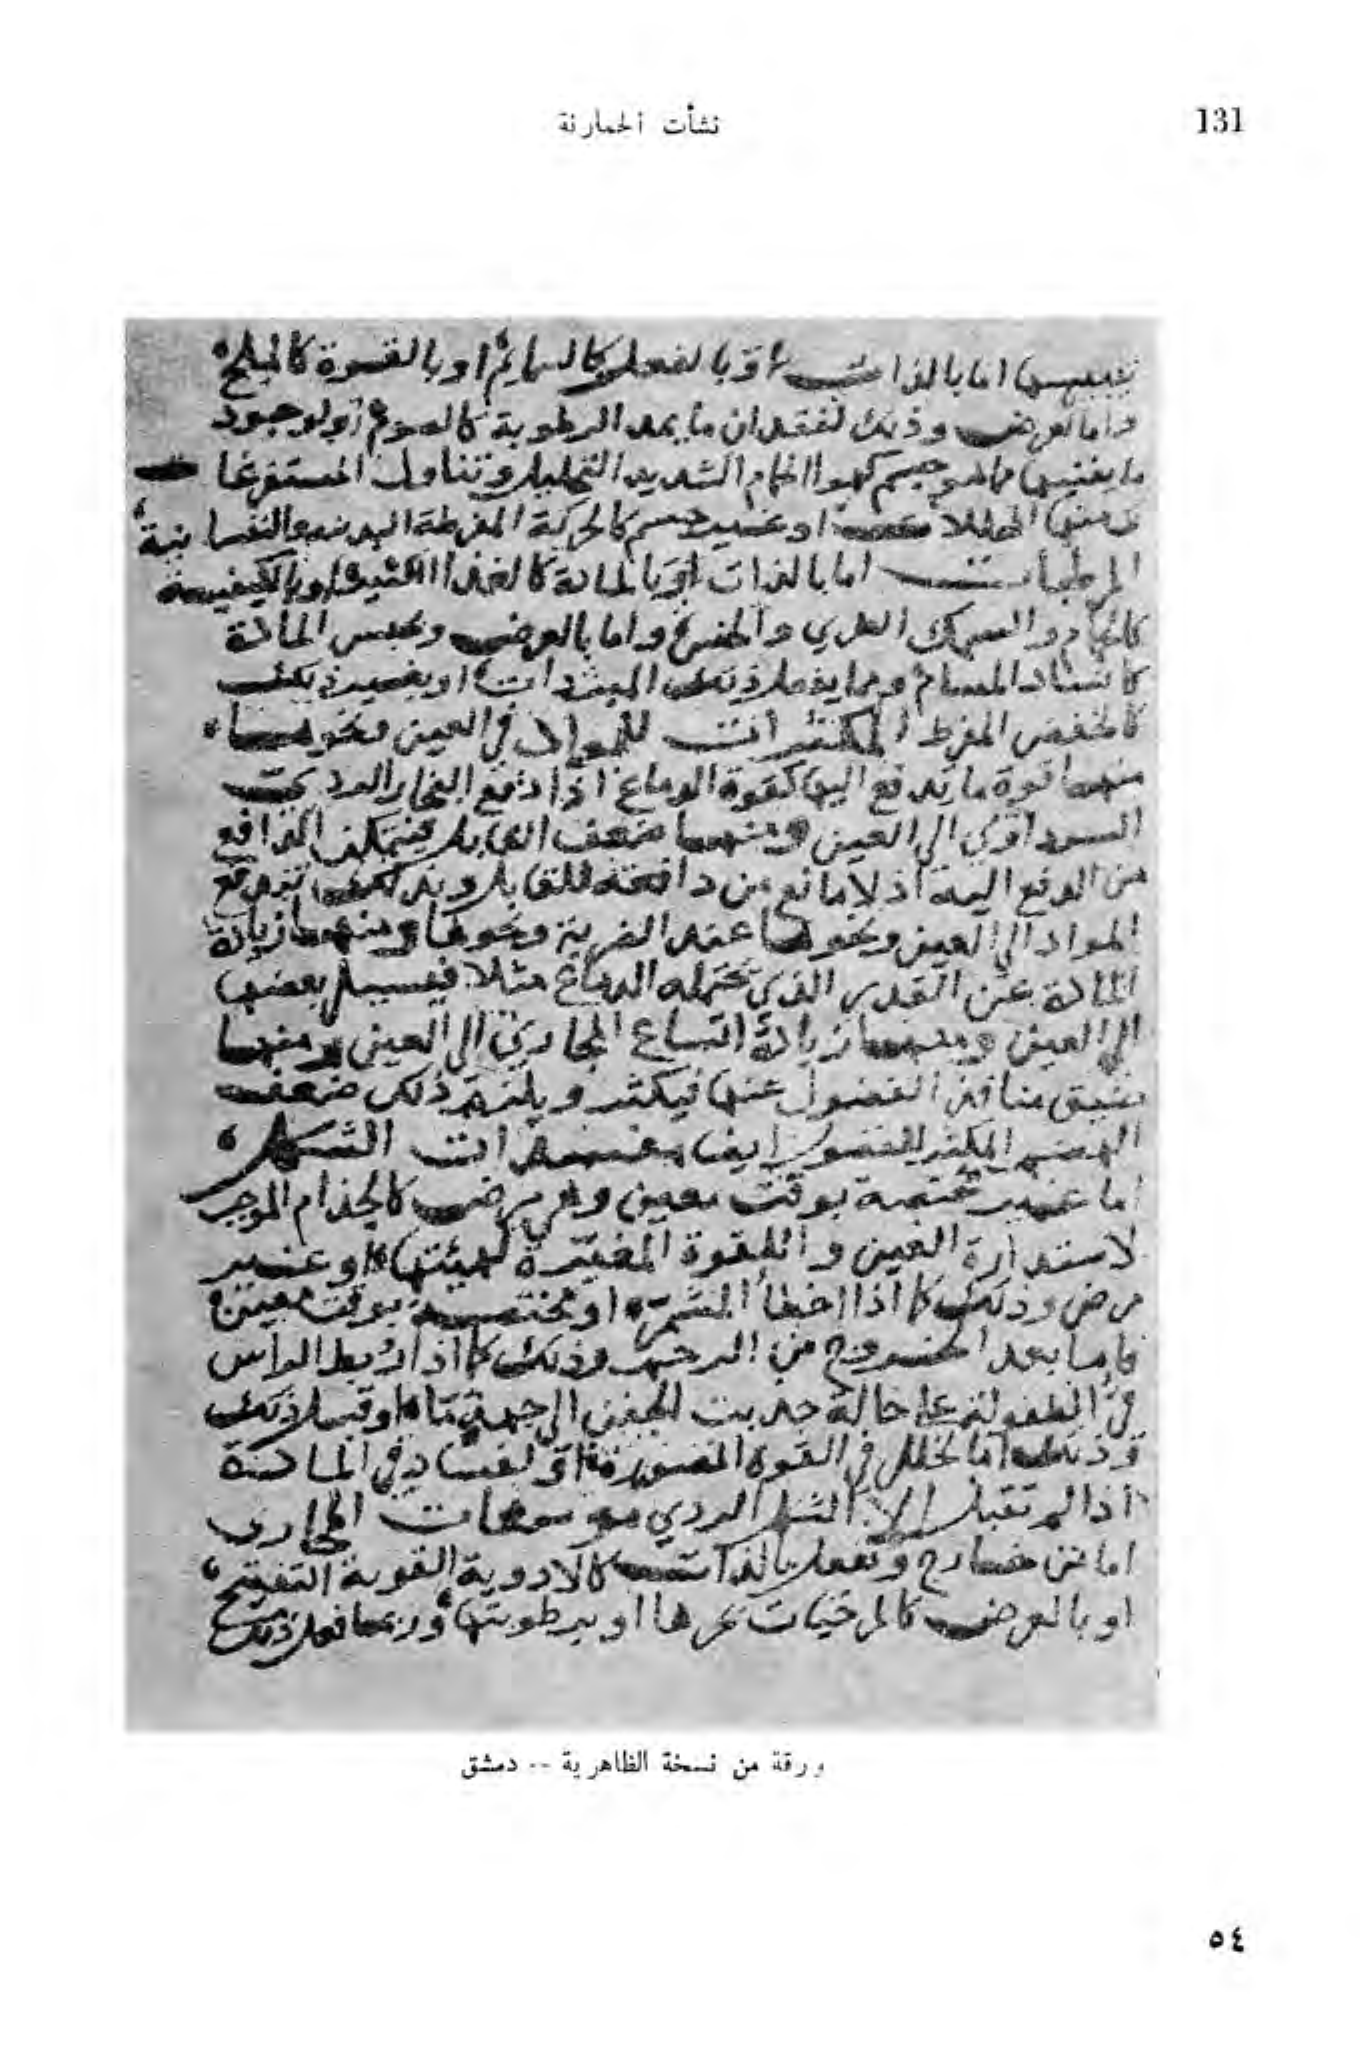 نشأت الحمارنة
131
اما بالذات او بالفعل كالسمايم او بالقوة كالملح
واما بالعرض وذلك لفقدان ما يمد الرطوبة كالصوم او لوجود
ما يفنيها مما هو جسم كهوا الحمام الشديد التحليل وتناول المستفرغات
المحللات او غير جسم كالحركة المفرطة البدنية والنفسانية
المرطبات اما بالذات او بالمادة كالغذا الكثير او بالكيفية
كالحمام والسمك الطري والخس واما بالعرض وبحبس المادة
كانسداد المسام ومما يفعل ذلك المبردات او بغير ذلك
كالخفض المفرط المكثرات للمواد في العين ونحوها
منها قوة ما يدفع اليها كقوة الدماغ اذا دفع البخار الردي
السوداوي الى العين ومنها ضعف القابل فيتمكن الدافع
من الدفع اليه اذ لا مانع من دافعته للقابل ولذلك تندفع
المواد الى العين ونحوها عند الضربة ونحوها ومنها زيادة
المادة عن القدر الذي يحتمله الدماغ مثلا فيسيل بعضها
الى العين ومنها زيادة اتساع المجاري الى العين ومنها
ضيق منافذ الفضول عنها فيكثر ويلزم ذلك ضعف
الهضم المكثر للفضول ايضا مفسدات الشكل
اما غير مختصة بوقت معين وهي مرض كالجذام الموجب
لاستدارة العين واللقوة المغيرة لهيئتها او غير
مرض وذلك كما اذا اخطأ المشمر او مختصة بوقت معين
فاما بعد الخروج من الرحم وذلك كما اذا ربط الراس
في الطفولة على حالة جذبت الجفن الى جهة ما او قبل ذلك
وذلك اما لخلل في القوة المصورة او لفساد في المادة
اذا لم تقبل الا الشكل الردي موسعات المجاري
اما من خارج وتفعل بالذات كالادوية القوية التفتيح
او بالعرض كالمرخيات بحرها او برطوبتها وربما فعل ذلك
ورقة من نسخة الظاهرية -- دمشق
٥٤